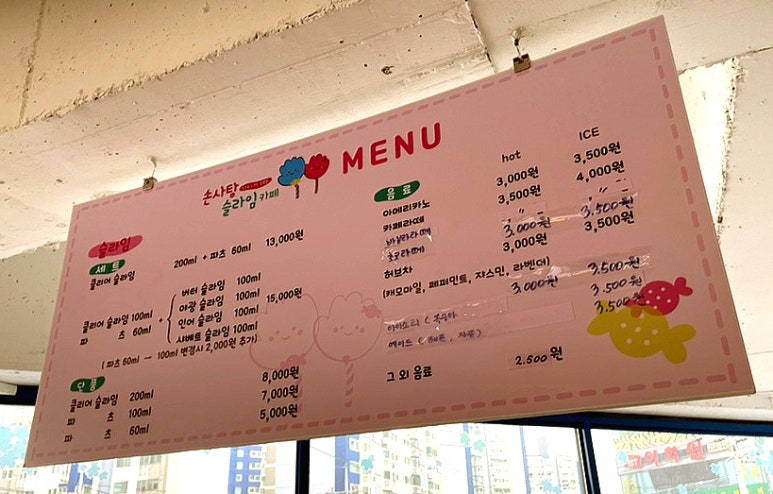 손사탕
슬라임카페
MENU
슬라임
세트
클리어 슬라임 200ml + 파츠 60ml 13,000원
클리어 슬라임 100ml
파 츠 60ml
+
버터 슬라임 100ml
야광 슬라임 100ml
인어 슬라임 100ml
샤베트 슬라임 100ml
15,000원
(파츠 60ml → 100ml 변경시 2,000원 추가)
단품
클리어 슬라임 200ml 8,000원
파 츠 100ml 7,000원
파 츠 60ml 5,000원
음료 hot ICE
아메리카노 3,000원 3,500원
카페라떼 3,500원 4,000원
바닐라라떼 〃 〃
초코라떼 3,000원 3,500원
허브차 3,000원 3,500원
(캐모마일, 페퍼민트, 쟈스민, 라벤더)
3,000원 3,500원
아이스티 ( 복숭아 3,500원
에이드 ( 레몬, 자몽) 3,500원
그 외 음료 2,500원